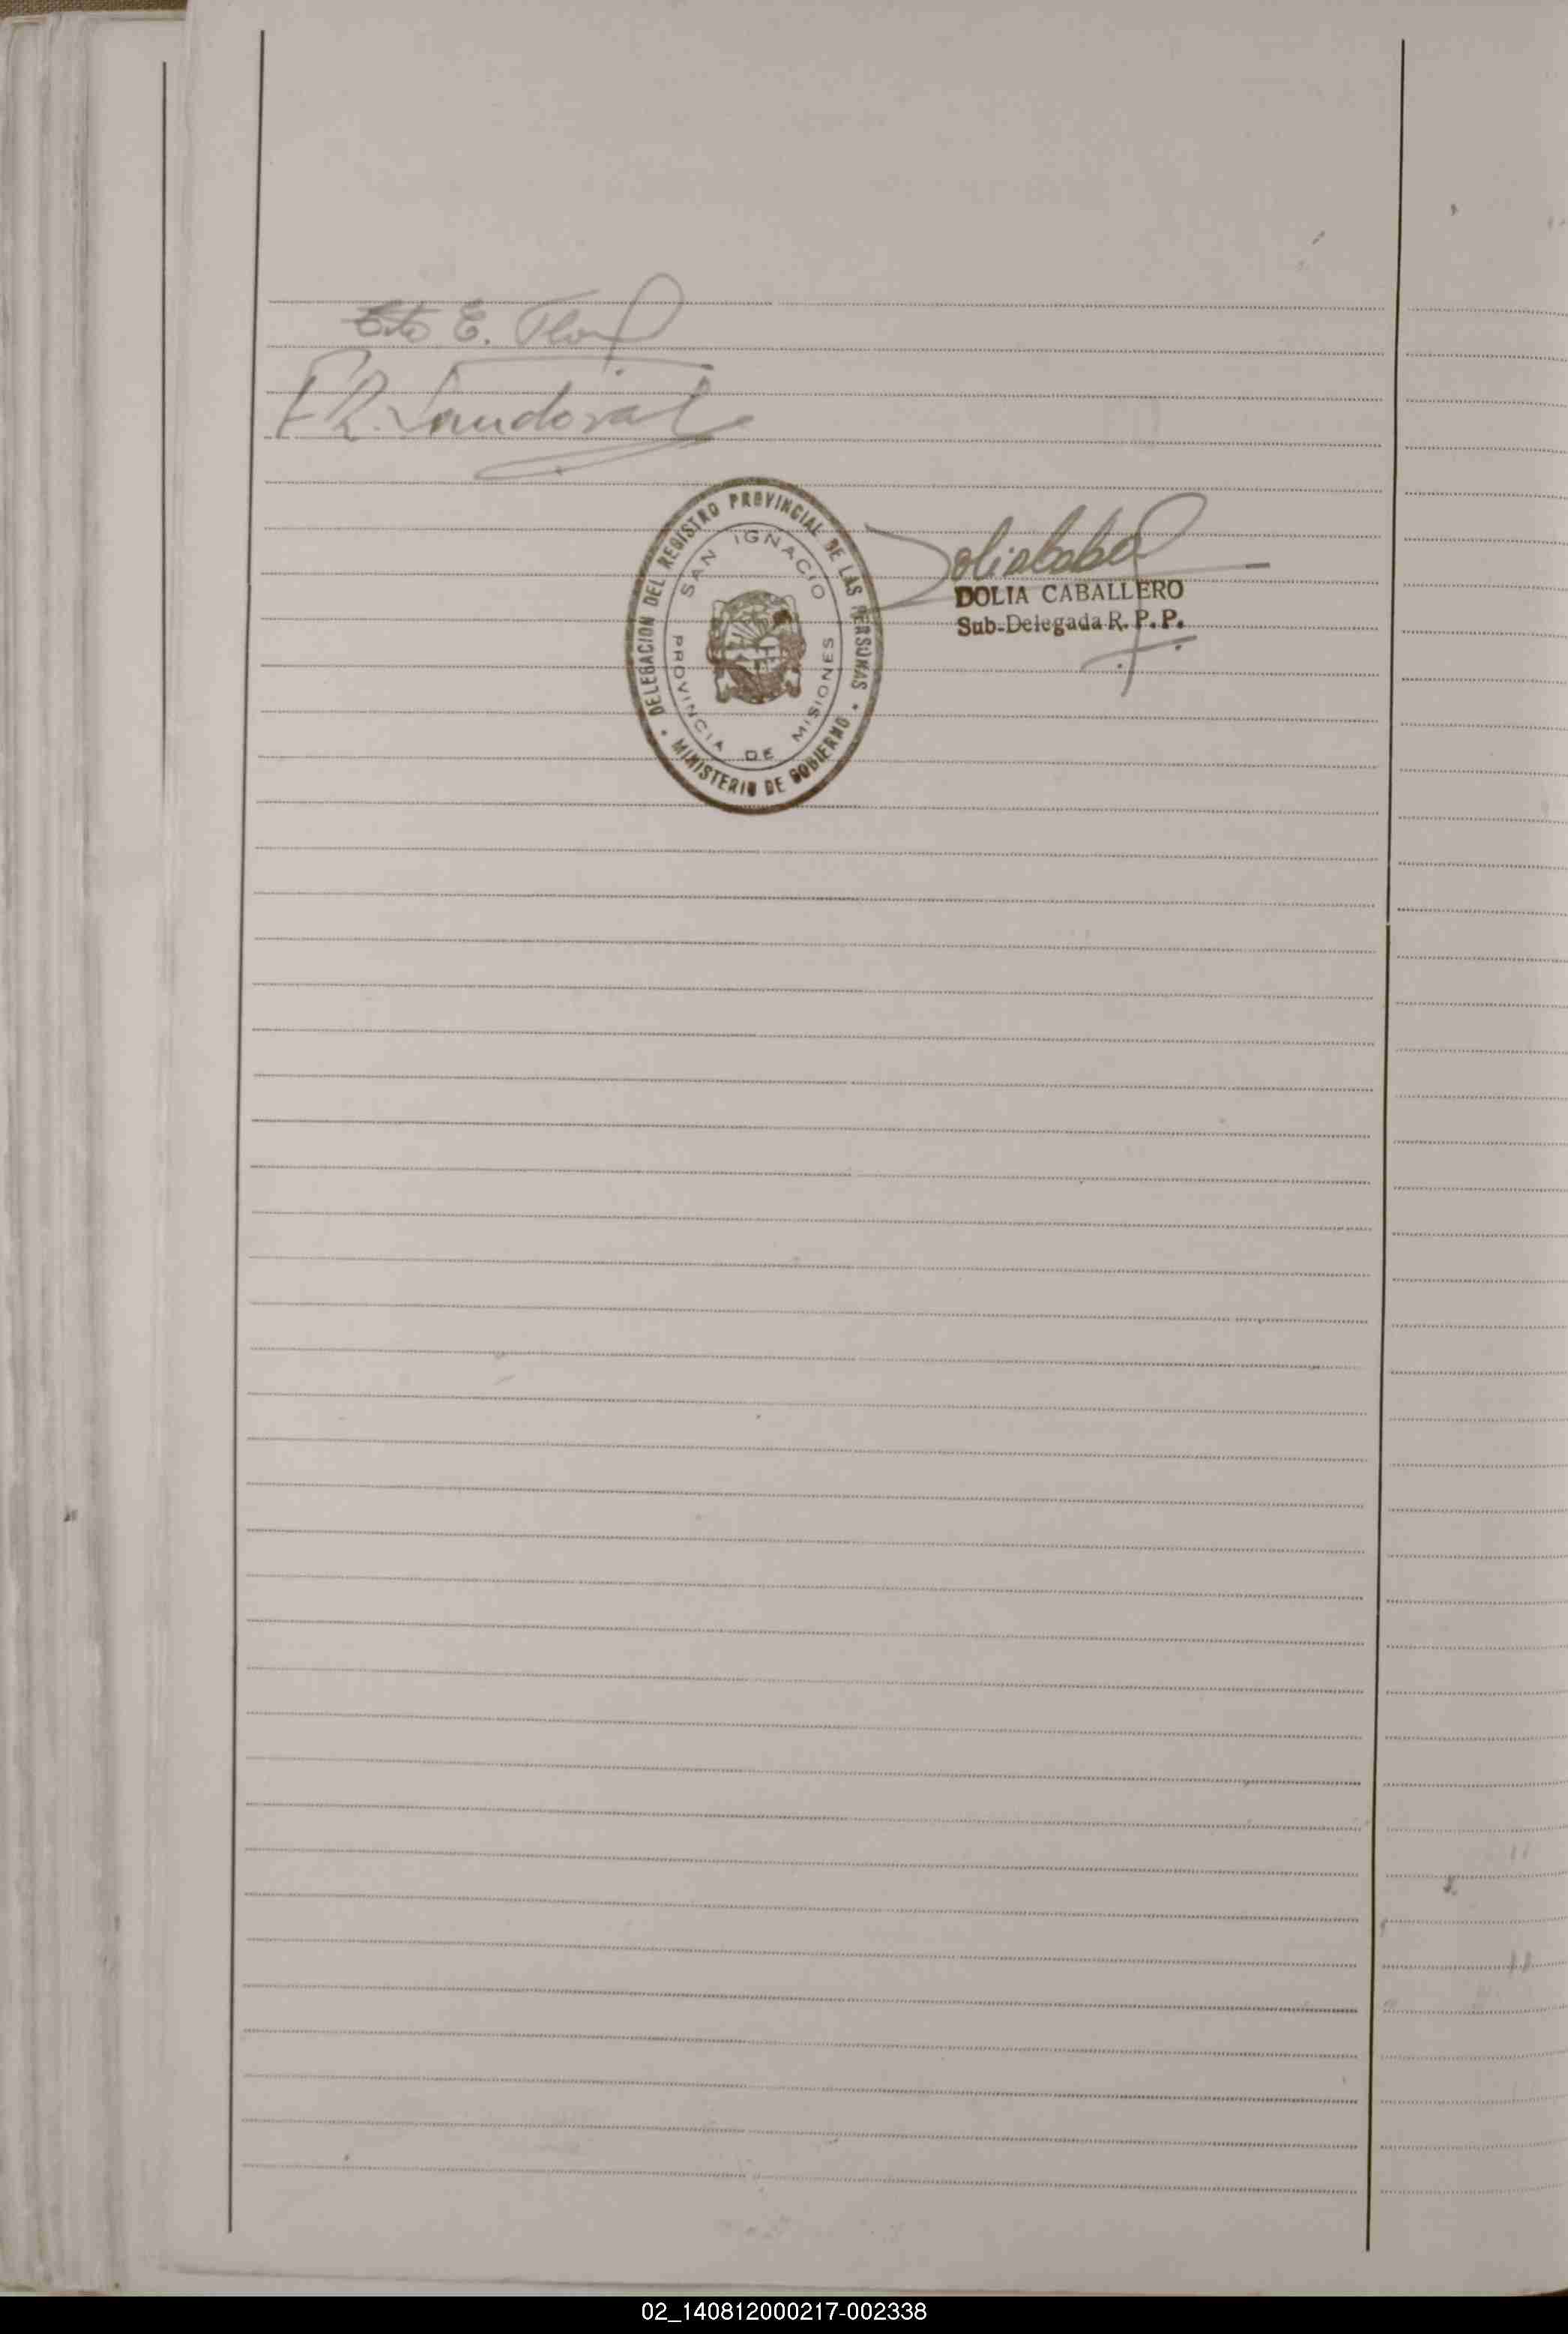 E.
F R. Sandoval
DELEGACION DEL REGISTRO PROVINCIAL DE LAS PERSONAS
SAN IGNACIO
PROVINCIA DE MISIONES
• MINISTERIO DE GOBIERNO •
DOLIA CABALLERO
Sub-Delegada R. P. P.
02_140812000217-002338